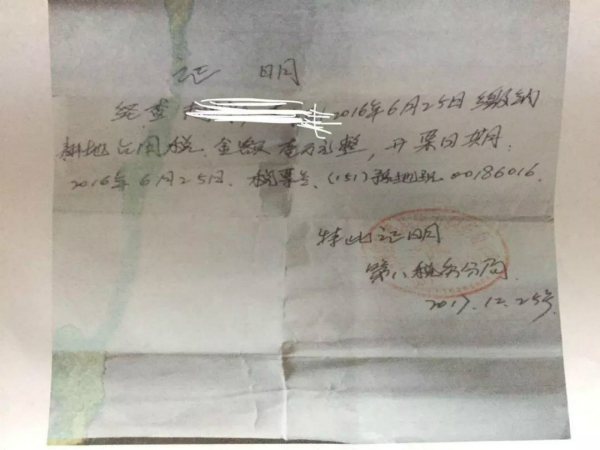 证 明
经查 2016年6月25日缴纳
耕地占用税.金额 壹万元整,开票日期
2016年6月25日.税票号.(151) 00186016.
特此证明
第八税务分局.
2017.12.25号.